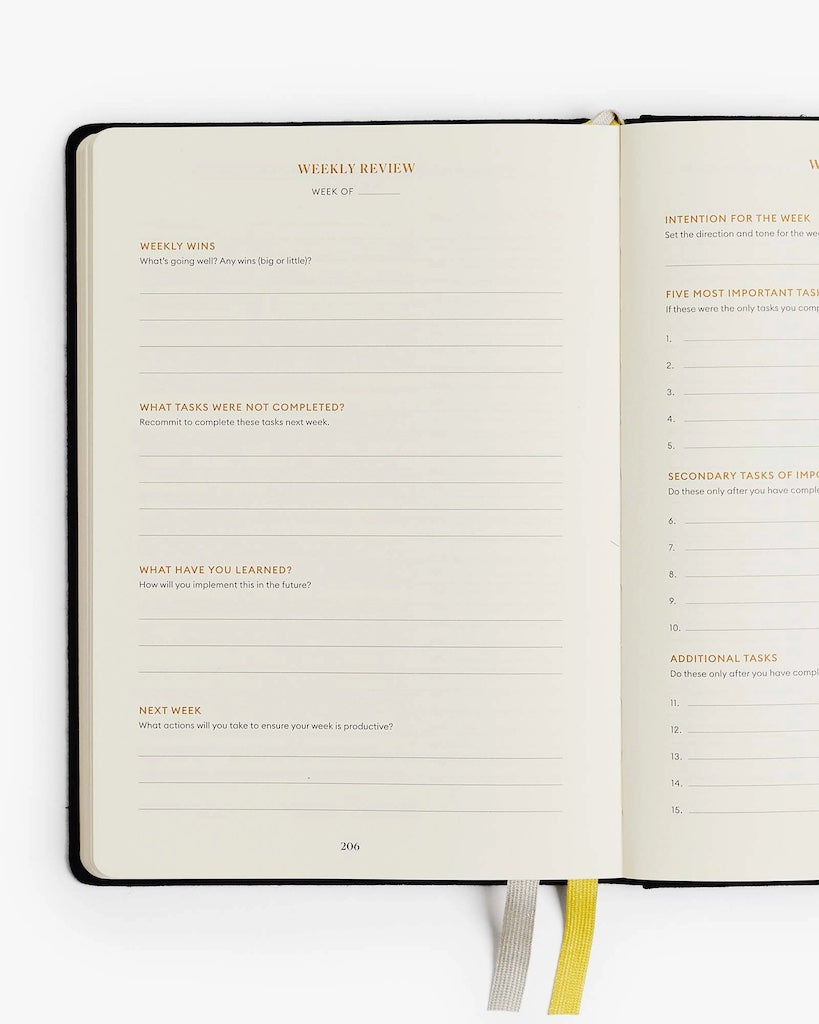 WEEKLY REVIEW
WEEK OF
WEEKLY WINS
What's going well? Any wins (big or little)?
WHAT TASKS WERE NOT COMPLETED?
Recommit to complete these tasks next week.
WHAT HAVE YOU LEARNED?
How will you implement this in the future?
NEXT WEEK
What actions will you take to ensure your week is productive?
206
INTENTION FOR THE WEEK
Set the direction and tone for the
FIVE MOST IMPORTANT
If these were the only tasks you
1.
2.
3.
4.
5.
SECONDARY TASKS OF
Do these only after you have
6.
7.
8.
9.
10.
ADDITIONAL TASKS
Do these only after you have
11.
12.
13.
14.
15.